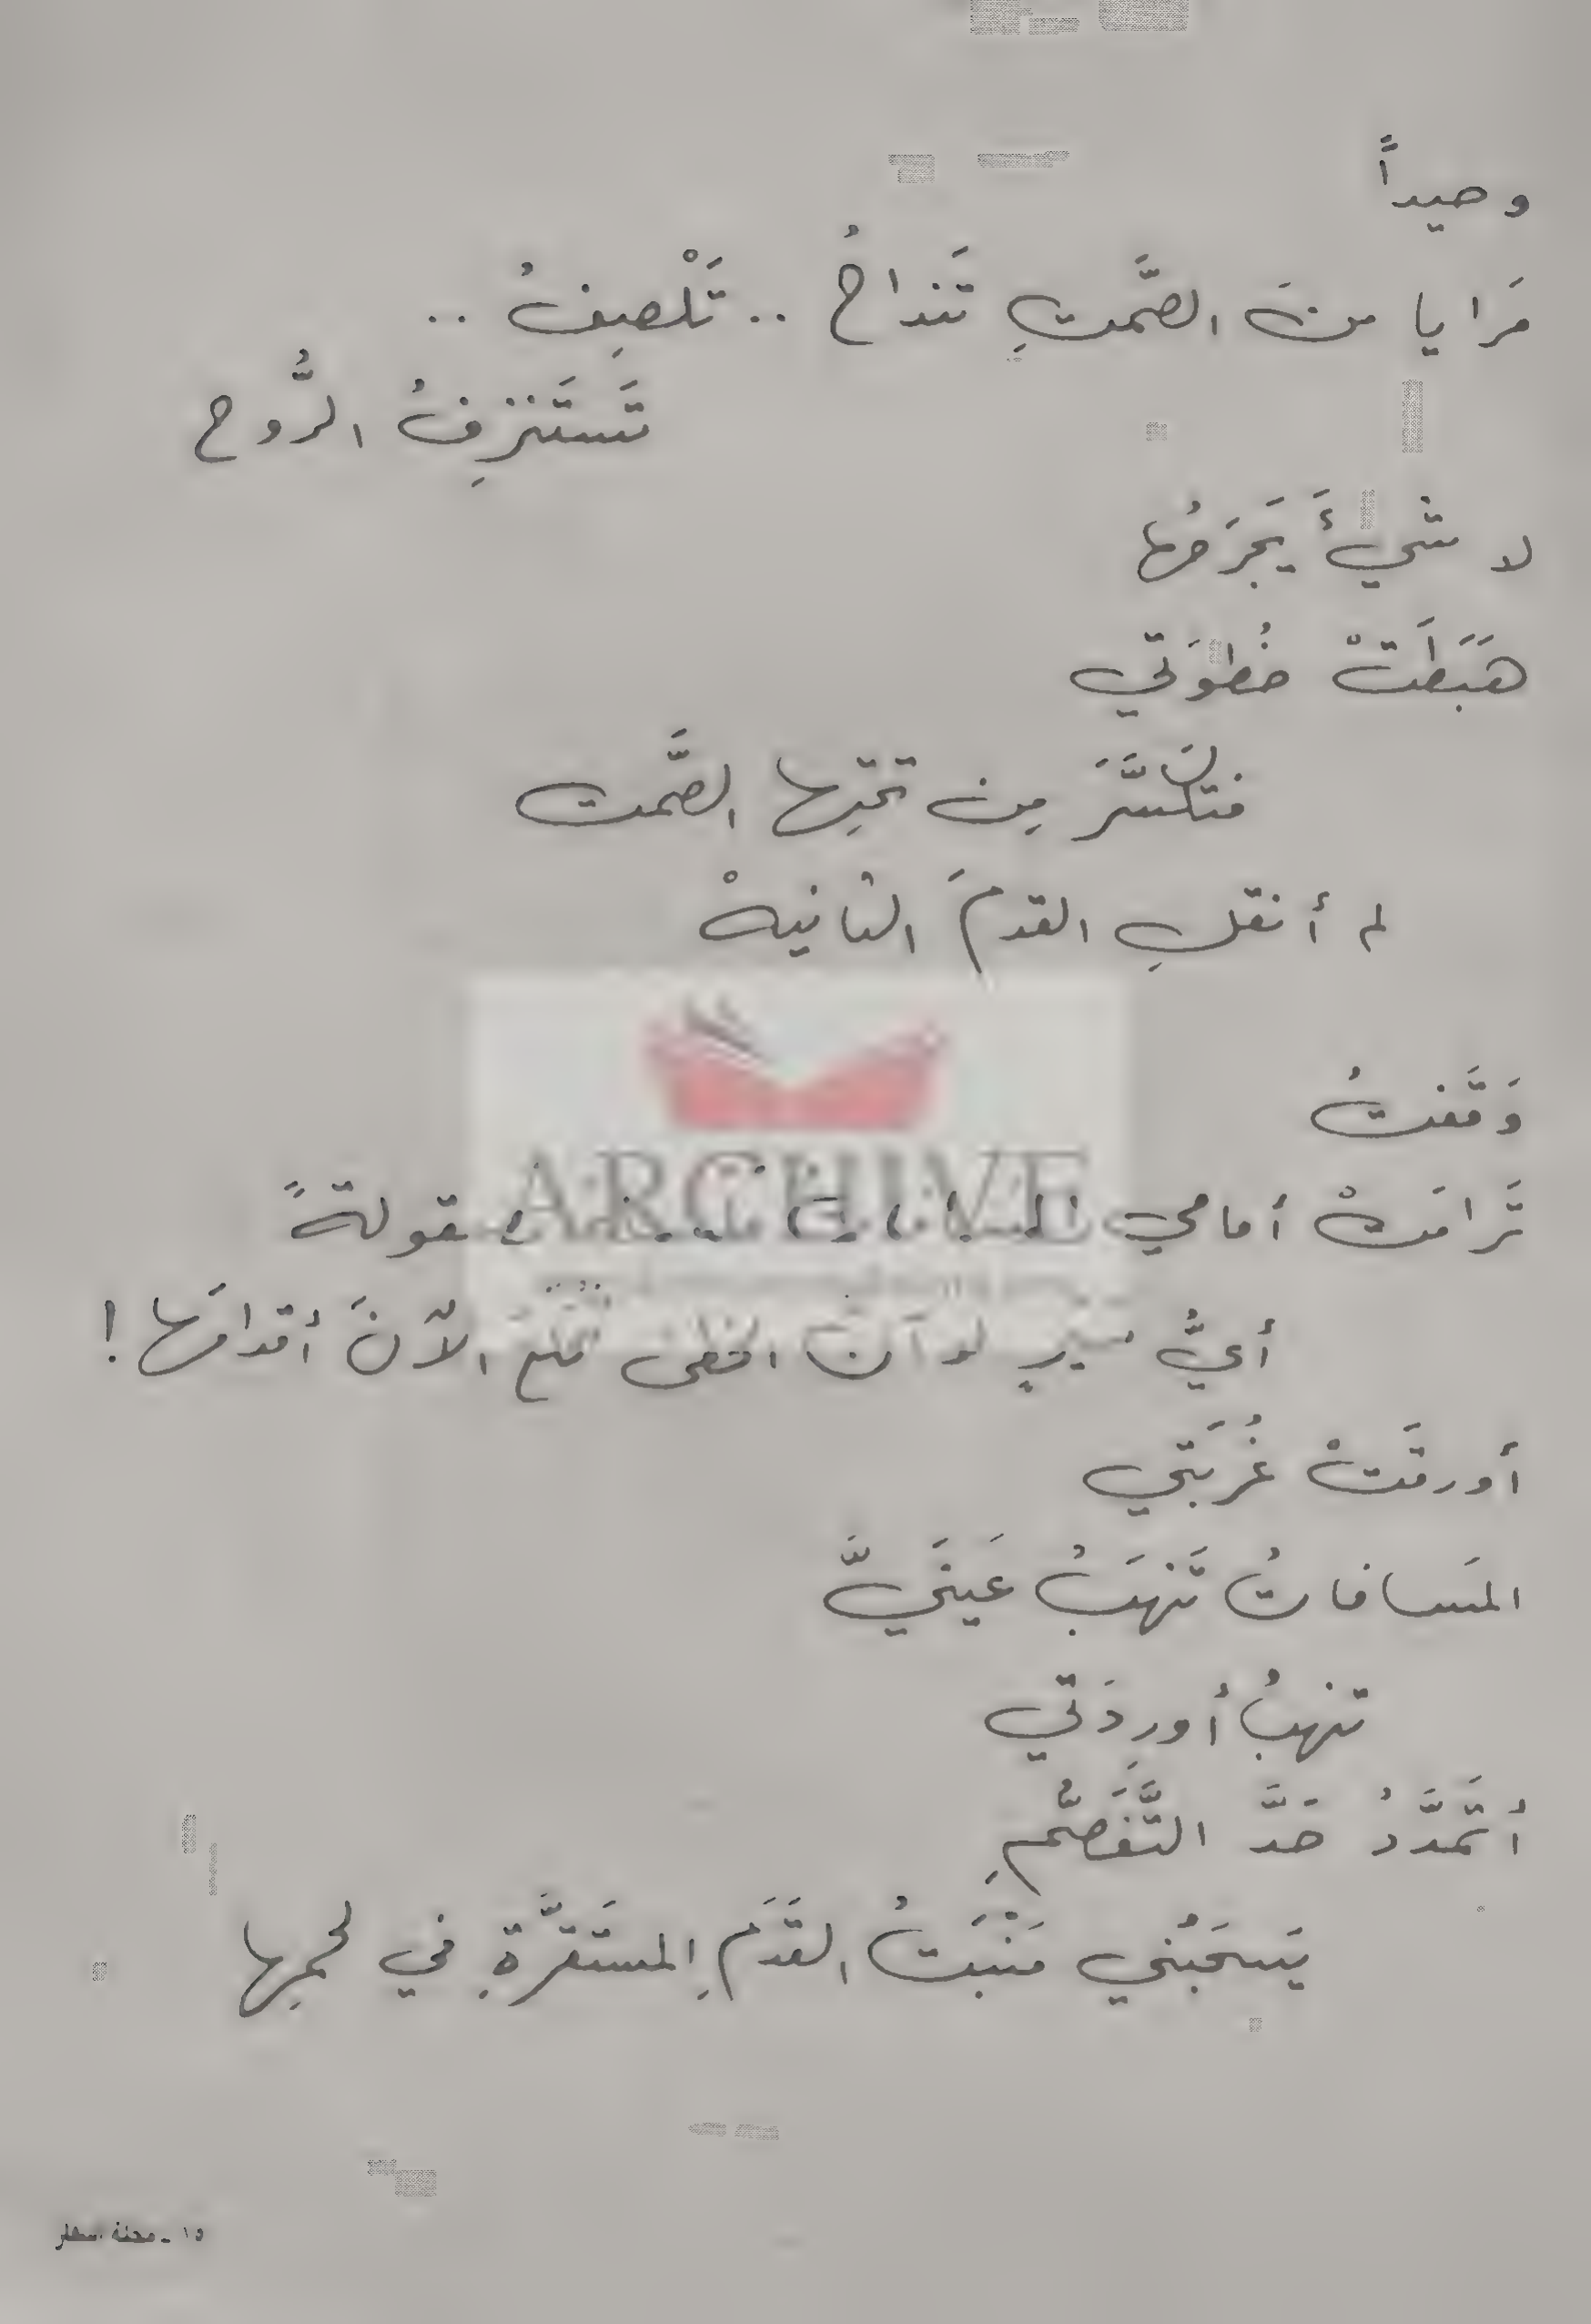 وحيداً
مَرايا منَ الصَّمتِ تَنداحُ .. تَلْصِفُ ..
تَستَنزِفُ الرُّوح
لا شيءَ يَجرَحُها
هَبَطَتْ خُطوَتي
فتكسَّرَ مِن تحتِها الصَّمت
لم أنقلِ القدمَ الثانيهْ
وَقَفتُ
تَرامَتْ أمامي مقولةً
أيُّ سيرٍ لو آنَ الخطى الآنَ أقدامَها !
أورقَتْ غُربَتي
المَسافاتُ تَنهَبُ عَينَيَّ
تنهبُ أورِدَتي
أتَمَدَّدُ حَدَّ التَّفَصُّمِ
يَسحَبُني مَنْبَتُ القَدَمِ المستَقرَّةِ في لحمِها
ARCHIVE
١٥ -